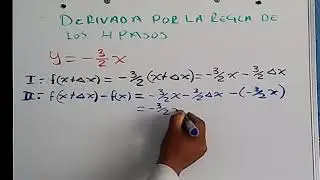 DERIVADA POR LA REGLA DE
LOS 4 PASOS
y = -3/2 x
I: f(x+Δx) = -3/2 (x+Δx) = -3/2 x - 3/2 Δx
II: f(x+Δx) - f(x) = -3/2 x - 3/2 Δx - (-3/2 x)
= -3/2 x